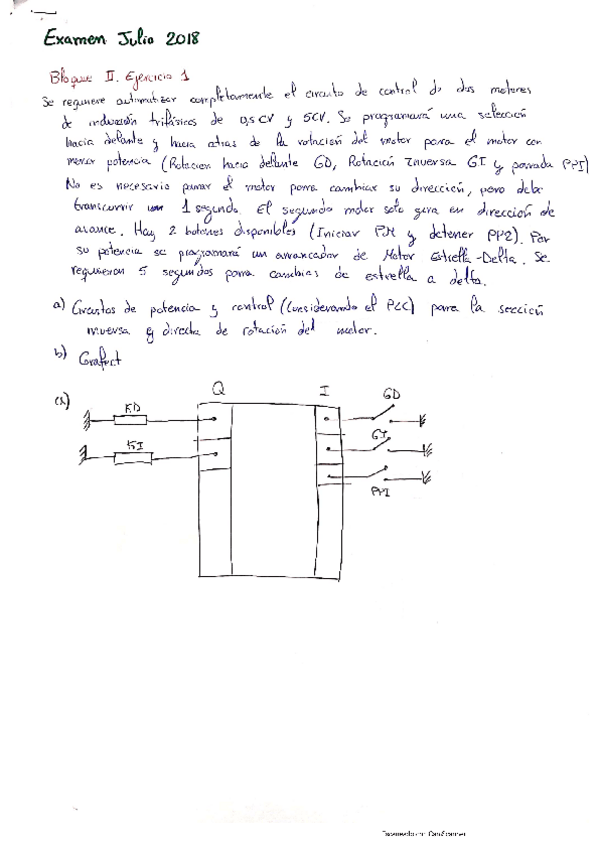 Examen Julio 2018
Bloque II. Ejercicio 1
Se requiere automatizar completamente el circuito de control de dos motores
de inducción trifásicos de 0,5 CV y 5CV. Se programará una selección
hacia delante y hacia atras de la rotación del motor para el motor con
menor potencia (Rotacion hacia dellante GD, Rotación Inversa GI y parada PP1)
No es necesario parar el motor para cambiar su dirección, pero debe
transcurrir un 1 segundo. El segundo motor solo gira en dirección de
avance. Hay 2 botones disponibles (Iniciar PM y detener PP2). Por
su potencia se programará un arrancador de Motor Estrella-Delta. Se
requieren 5 segundos para cambiar de estrella a delta.
a) Circuitos de potencia y control (Considerando el PLC) para la sección
inversa y directa de rotación del motor.
b) Grafcet
Q I GD
a) KD
GI
KI
PP1
Escaneado con CamScanner